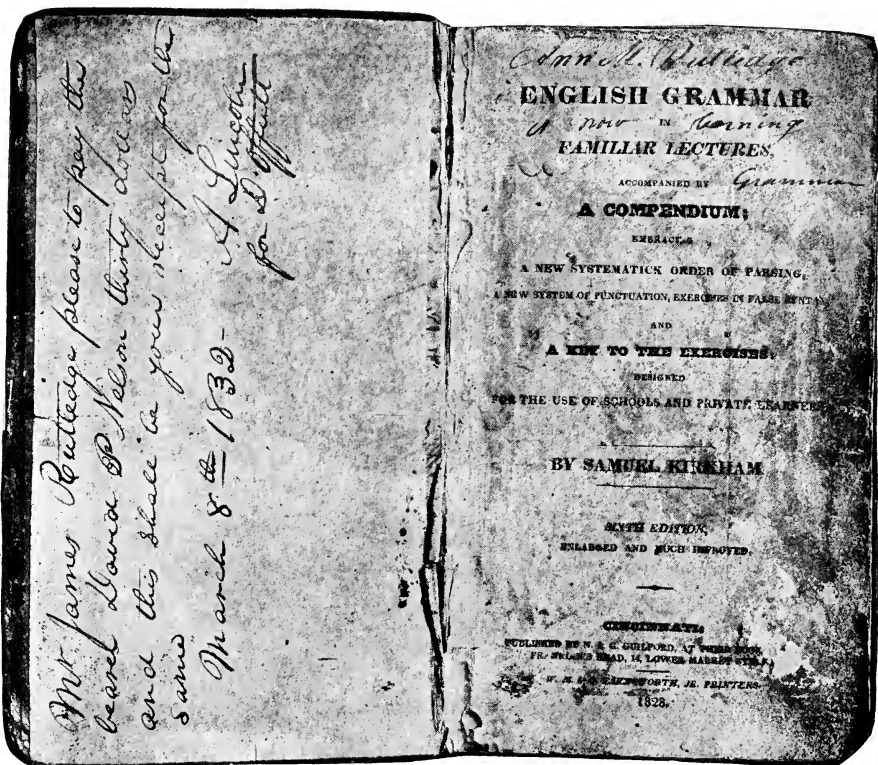 Mr James Rutledge please to pay the
bearer David P Nelson thirty dollars
and this shall be your receipt for the
same
March 8th 1832 -
A Lincoln
for D Offutt
Ann M. Rutledge
ENGLISH GRAMMAR
is now IN learning
FAMILIAR LECTURES,
ACCOMPANIED BY Grammar
A COMPENDIUM;
EMBRACING
A NEW SYSTEMATICK ORDER OF PARSING,
A NEW SYSTEM OF PUNCTUATION, EXERCISES IN FALSE SYNTAX,
AND
A KEY TO THE EXERCISES:
DESIGNED
FOR THE USE OF SCHOOLS AND PRIVATE LEARNERS
BY SAMUEL KIRKHAM
SIXTH EDITION,
ENLARGED AND MUCH IMPROVED.
CINCINNATI:
PUBLISHED BY N. & G. GUILFORD, AT
HEAD, 14, LOWER MARKET STREET
JR. PRINTERS.
1828.